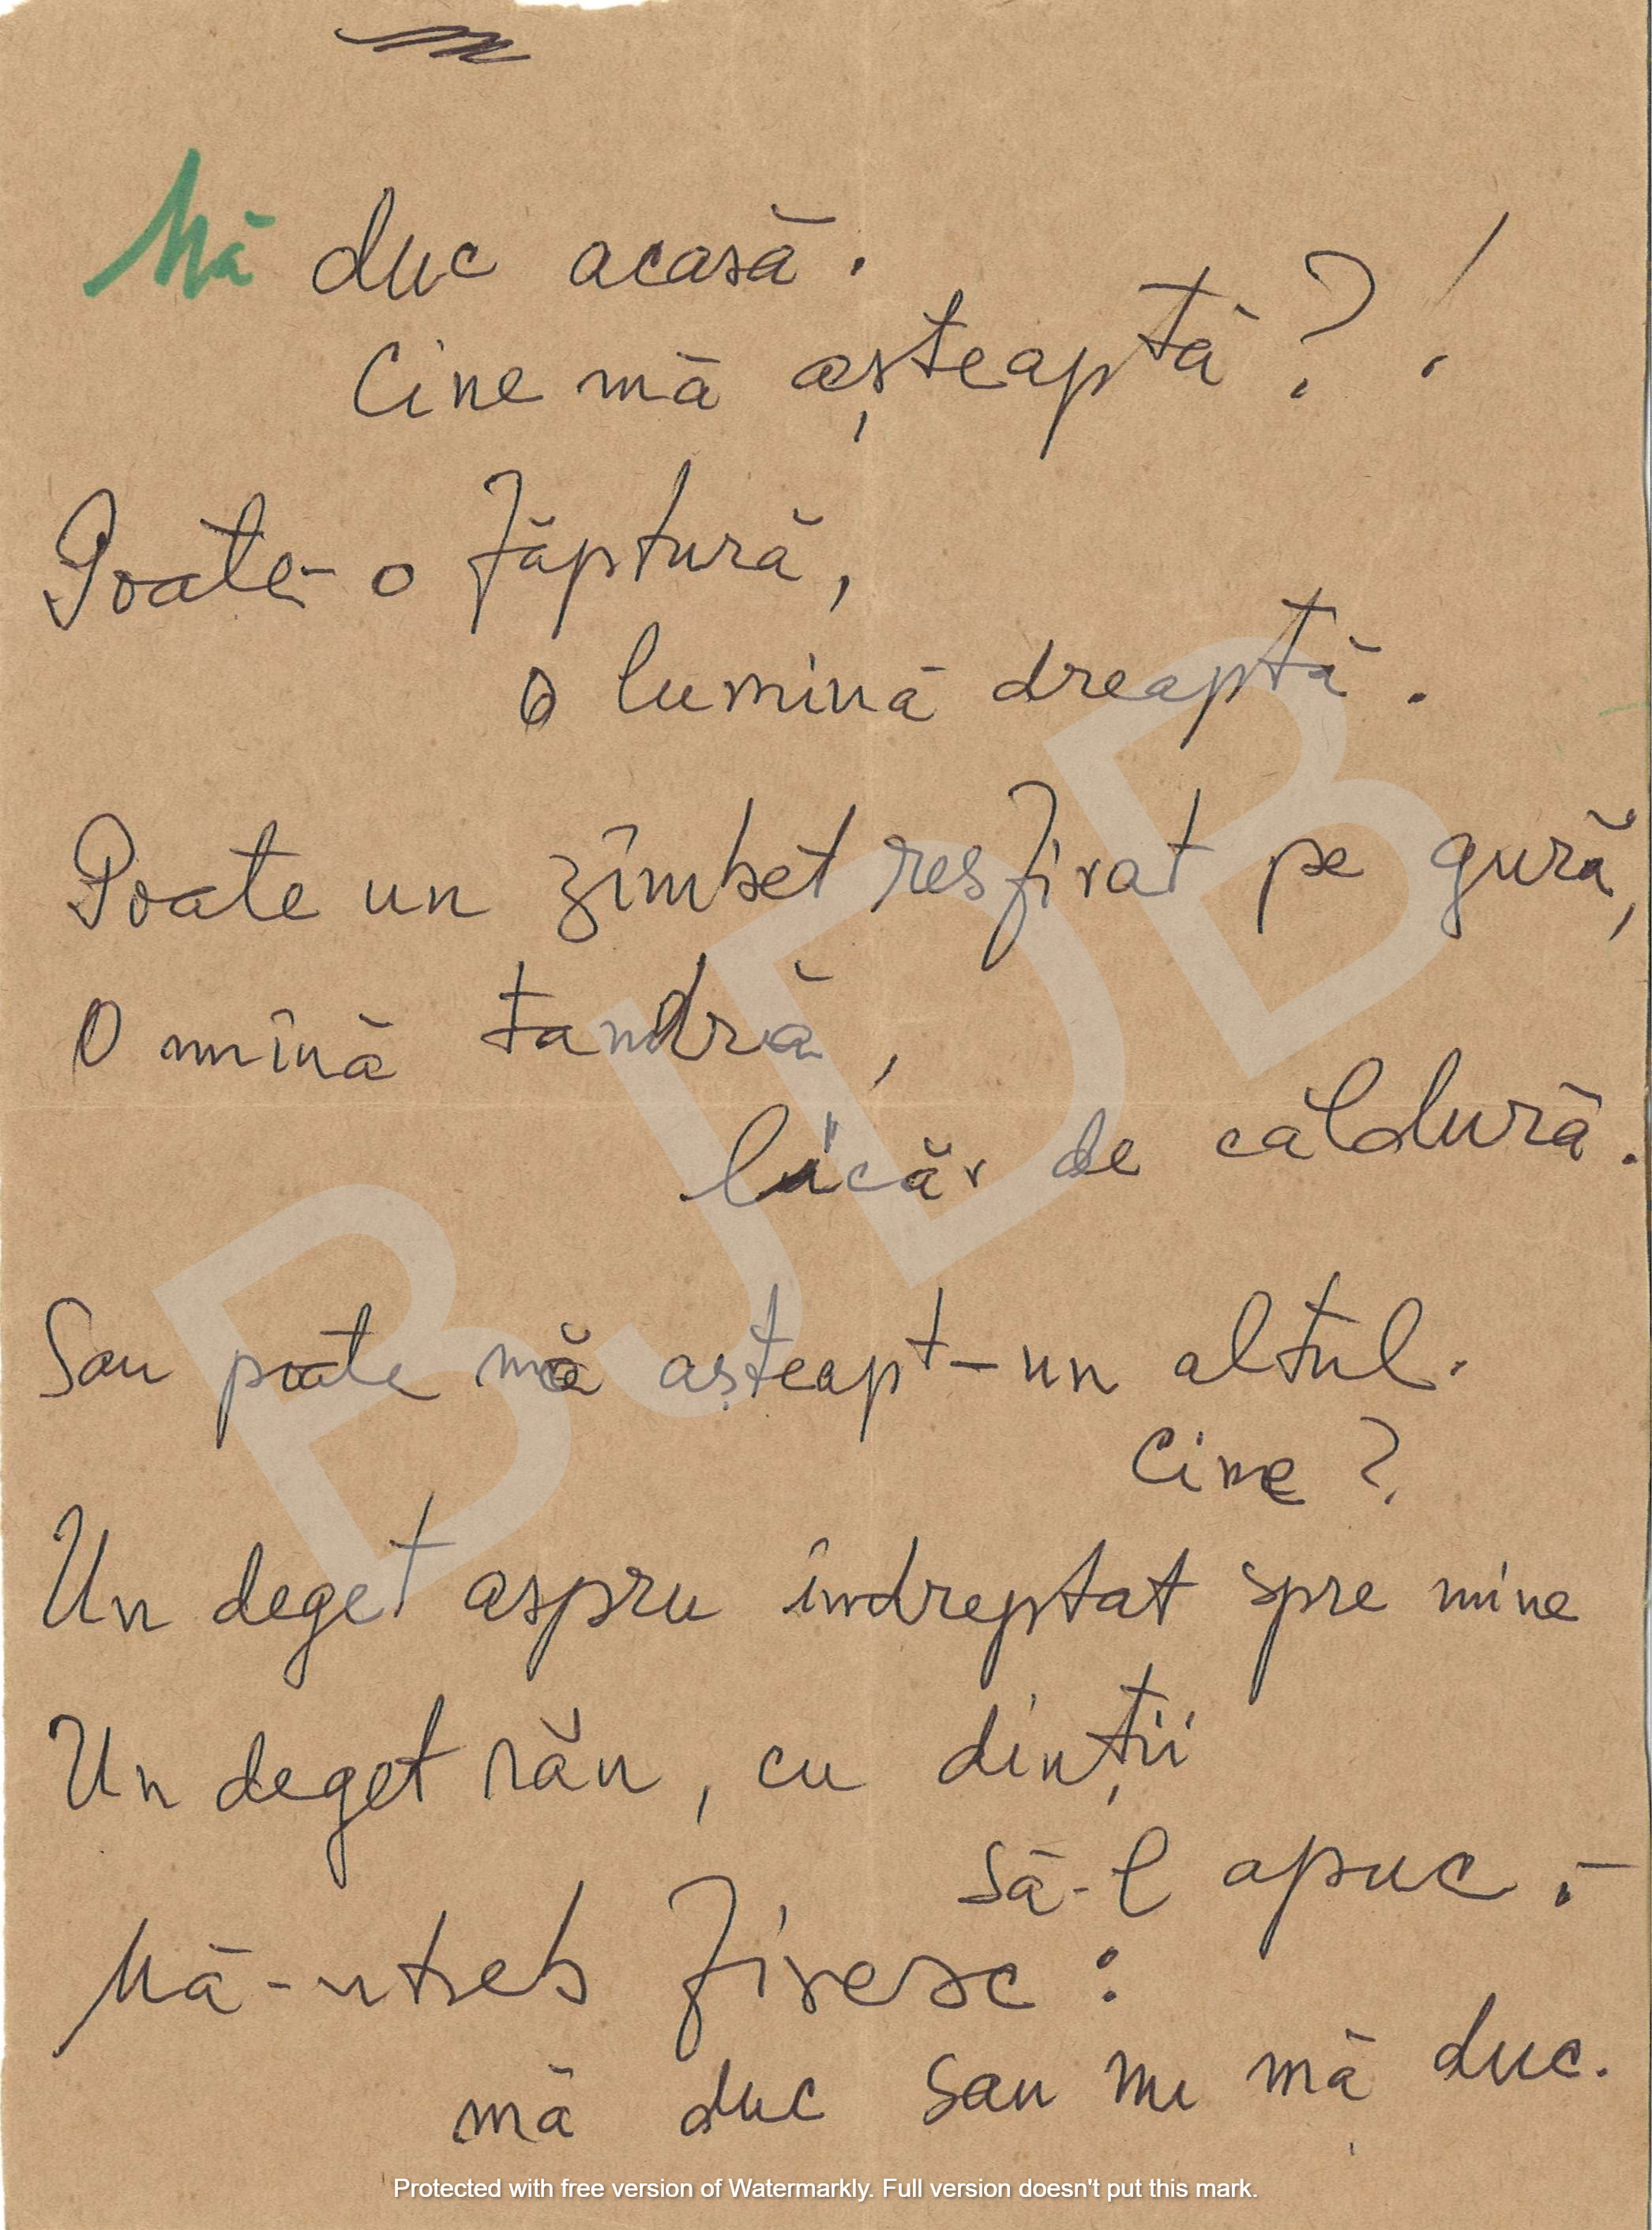 Mă duc acasă.
Cine mă așteaptă?!
Poate-o făptură,
o lumină dreaptă.
Poate un zîmbet resfirat pe gură,
O mînă tandră,
licăr de căldură.
Sau poate mă așteapt-un altul.
Cine?
Un deget aspru îndreptat spre mine
Un deget rău, cu dinții
să-l apuc.-
Mă-ntreb firesc:
mă duc sau nu mă duc.
BJDB
Protected with free version of Watermarkly. Full version doesn't put this mark.